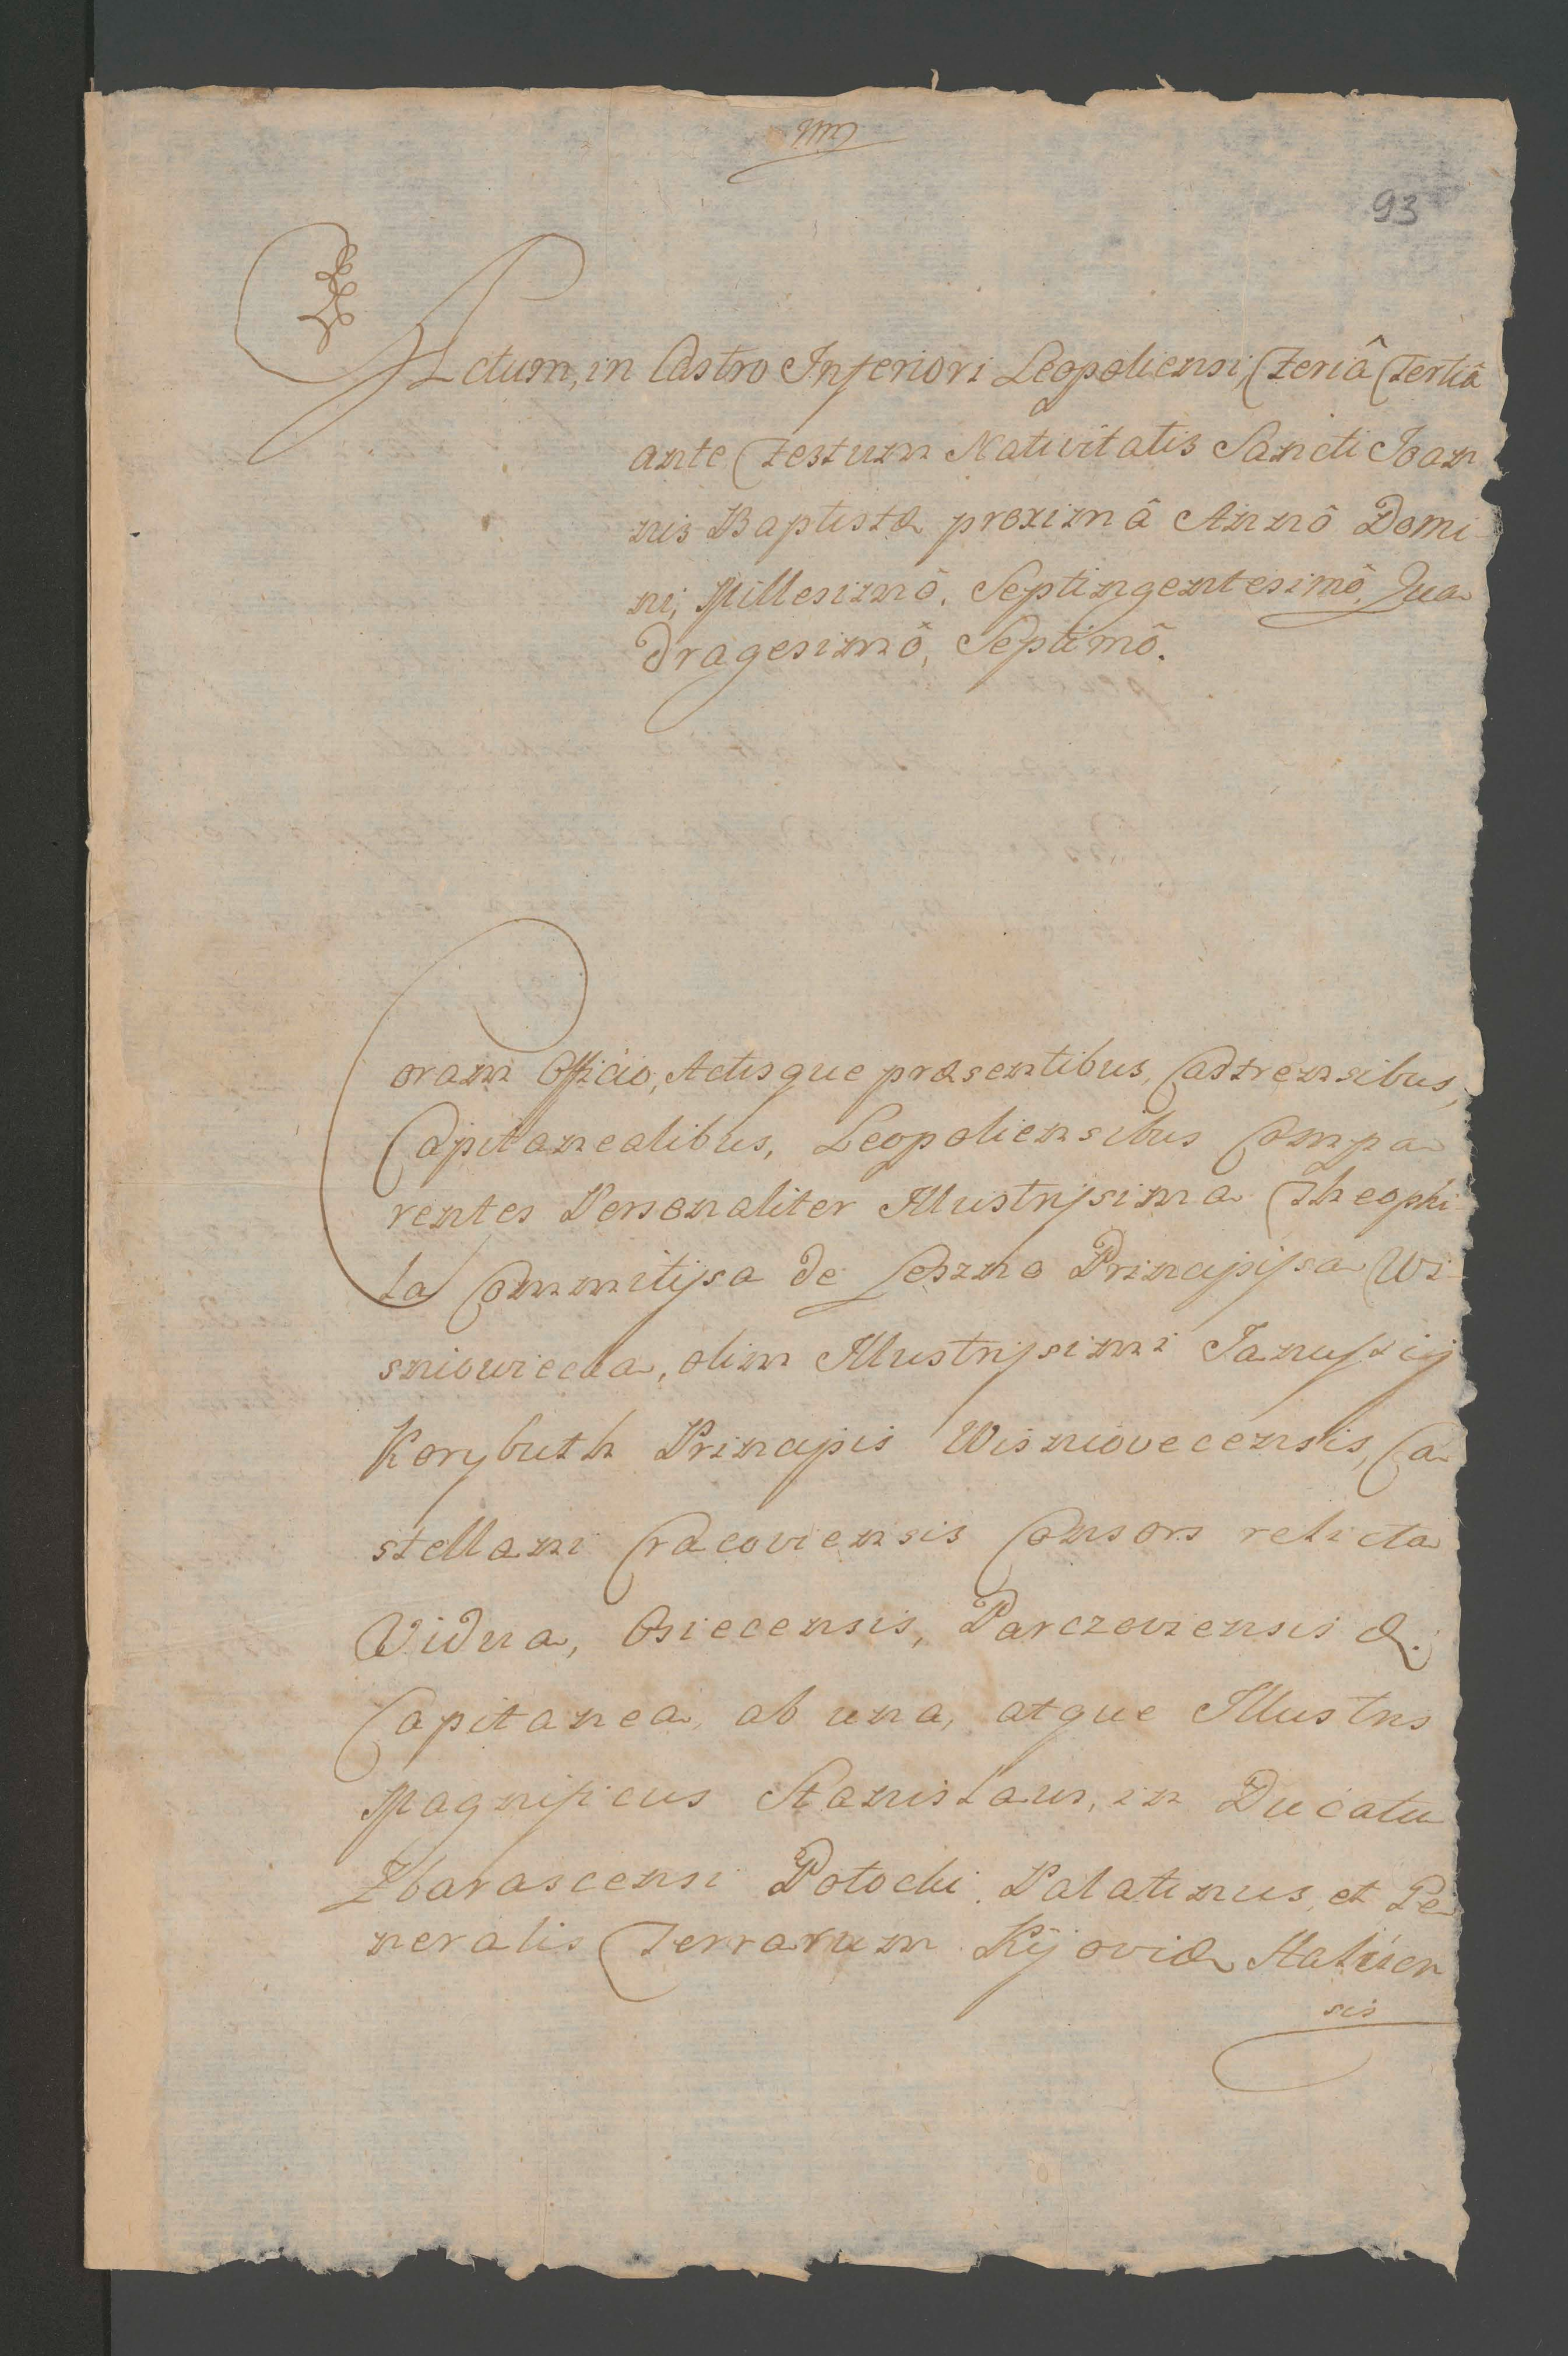 93
Actum, in Castro Inferiori Leopoliensi, Feriâ Tertiâ
ante Festum Nativitatis Sancti Joan
nis Baptistæ proximâ Annô Domi
ni, Millesimô, Septingentesimô, Qua
dragesimô, Septimô.
Coram Officio, Actisque præsentibus, Castrensibus,
Capitanealibus, Leopoliensibus Compa
rentes Personaliter Illustrissima Theophi
la Commitissa de Leszno Principissa Wi
sniowiecka, olim Illustrissimi Januszij
Korybuth Principis Wisniovecensis, Ca
stellani Cracoviensis Consors relicta
Vidua, Osiecensis, Parczoviensis &.
Capitanea, ab una, atque Illustris
Magnificus Stanislaus, in Ducatu
Zbarascensi Potocki Palatinus, et Ge
neralis Terrarum Kijoviæ Halicien
sis